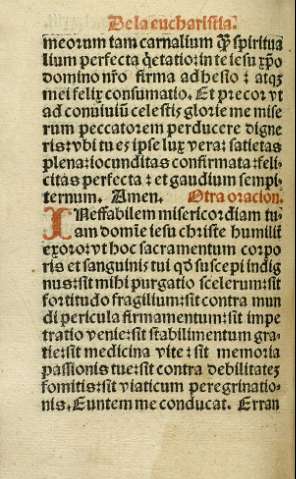 De la eucharistia.
meorum tam carnalium q̃ꝫ spiritua
lium perfecta q̃etatio: in te iesu xp̃o
domino nr̃o firma adhesio ⁊ atqꝫ
mei felix consumatio. Et precor vt
ad conuiuiũ celestis glorie me mise
rum peccatorem perducere digne
ris: vbi tu es ipse lux vera: satietas
plena: iocunditas confirmata: feli-
citas perfecta ⁊ et gaudium sempi-
ternum. Amen. Otra oracion.
INeffabilem misericordiam tu-
am domĩe iesu christe humilit̃
exoro: vt hoc sacramentum corpo
ris et sanguinis tui qd̓ suscepi indig
nus: sit mihi purgatio scelerum: sit
fortitudo fragilium: sit contra mun
di pericula firmamentum: sit impe
tratio venie: sit stabilimentum gra-
tie: sit medicina vite: sit memoria
passionis tue: sit contra debilitateꝫ
fomitis: sit viaticum peregrinatio-
nis. Euntem me conducat. Erran